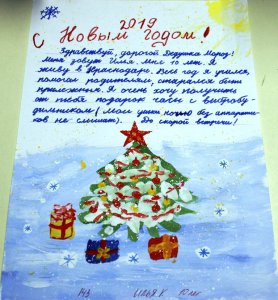 2019
С Новым годом!
Здравствуй, дорогой Дедушка Мороз!
Меня зовут Илья. Мне 10 лет. Я
живу в Краснодаре. Весь год я учился,
помогал родителям, старался быть
прилежным. Я очень хочу получить
от тебя подарок часы с вибробу-
дильником (Мои ушки ночью без аппарати-
ков не слышат). До скорой встречи!
143 Илья К. 10 лет